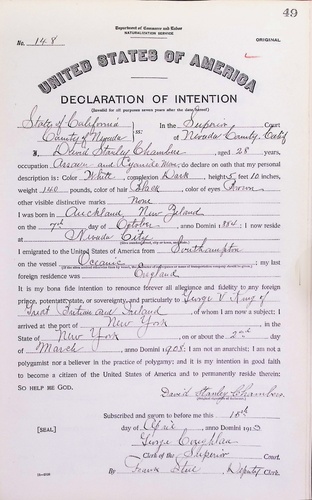 49
Department of Commerce and Labor
NATURALIZATION SERVICE
No. 148
ORIGINAL
UNITED STATES OF AMERICA
DECLARATION OF INTENTION
(Invalid for all purposes seven years after the date hereof)
State of California
County of Nevada
ss:
In the Superior Court
of Nevada County, Calif
I, David Stanley Chambers, aged 28 years,
occupation Assayer and Cyanide Man, do declare on oath that my personal
description is: Color White, complexion Dark, height 5 feet 10 inches,
weight 140 pounds, color of hair Black, color of eyes Brown
other visible distinctive marks None
I was born in Auckland, New Zeland
on the 7th day of October, anno Domini 1884; I now reside
at Nevada City
I emigrated to the United States of America from Southampton
on the vessel Oceanic; my last
foreign residence was England
It is my bona fide intention to renounce forever all allegiance and fidelity to any foreign
prince, potentate, state, or sovereignty, and particularly to George V King of
Great Britian and Ireland, of whom I am now a subject; I
arrived at the port of New York, in the
State of New York on or about the 2nd day
of March, anno Domini 1908; I am not an anarchist; I am not a
polygamist nor a believer in the practice of polygamy; and it is my intention in good faith
to become a citizen of the United States of America and to permanently reside therein:
SO HELP ME GOD.
David Stanley Chambers
Subscribed and sworn to before me this 15th
[SEAL]
day of April, anno Domini 1913
George Coughlan
Clerk of the Superior Court.
By Frank Steel, Deputy Clerk.